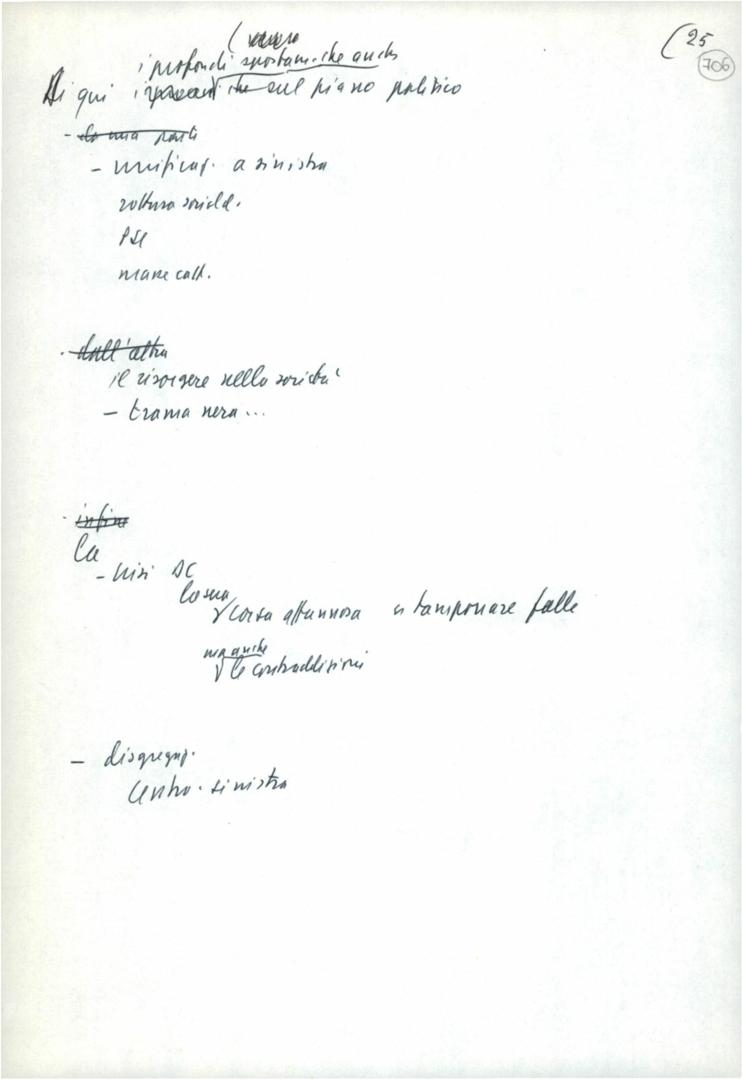 (25
706
i profondi spostam. che anche
Di qui i che sul piano politico
- da una parte
- unificaz. a sinistra
rottura sociald.
PSI
masse catt.
- dall'altra
il risorgere nella società
- trama nera...
- infine
La
- crisi DC
la sua
corsa affannosa a tamponare falle
ma anche
le contraddizioni
- disgregaz.
centro-sinistra